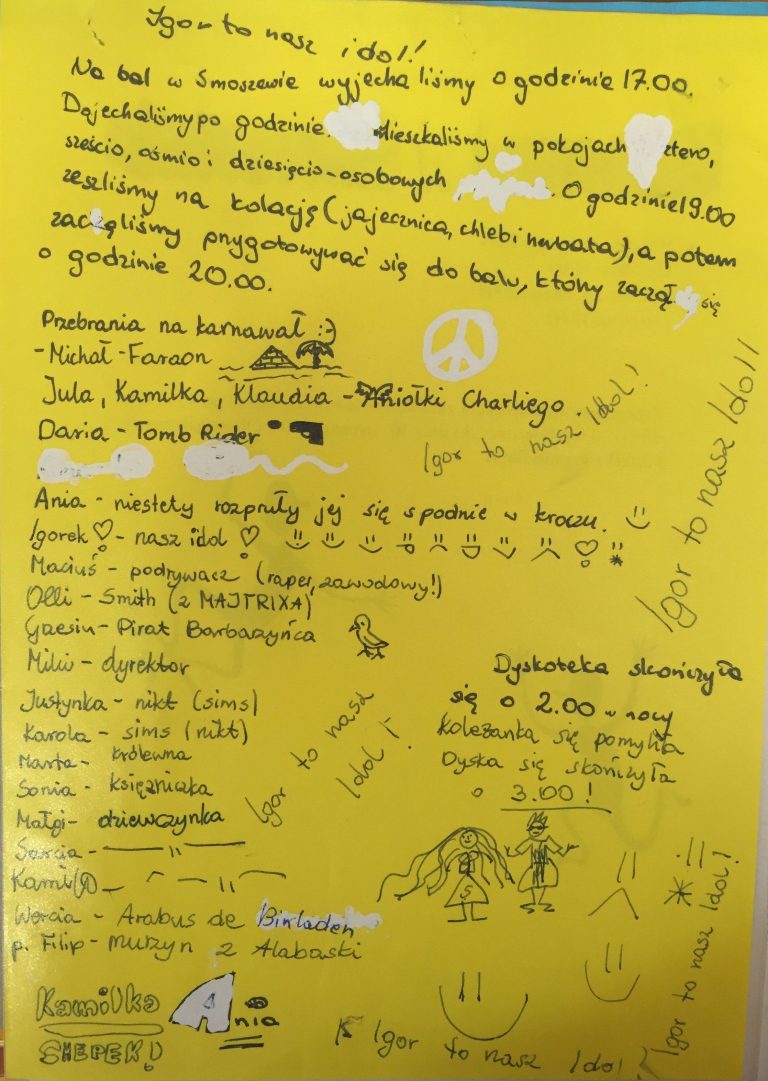 Igor to nasz idol!
Na bal w Smoszewie wyjechaliśmy o godzinie 17.00.
Dojechaliśmy po godzinie. Mieszkaliśmy w pokojach cztero,
sześcio, ośmio i dziesięcio-osobowych. O godzinie 19.00
zeszliśmy na kolację (jajecznica, chleb i herbata), a potem
zaczęliśmy przygotowywać się do balu, który zaczął się
o godzinie 20.00.
Przebrania na karnawał :-)
- Michał - Faraon
Jula, Kamilka, Klaudia - Aniołki Charliego
Daria - Tomb Rider
Igor to nasz Idol!
Igor to nasz Idol!!
Ania - niestety rozpruły jej się spodnie w kroczu.
Igorek - nasz idol
Maciuś - podrywacz (raper, zawodowy!)
Olli - Smith (z MAJTRIXA)
Grzesiu - Pirat Barbarzyńca
Milu - dyrektor
Justynka - nikt (sims)
Karola - sims (nikt)
Marta - królewna
Sonia - księżniczka
Małgi - dziewczynka
Sarcia - — " —
Kamil
Wercia - Arabus de Binladen
p. Filip - Murzyn z Alabaski
Igor to nasz
Idol!
Dyskoteka skończyła
się o 2.00 w nocy
Koleżanka się pomyliła
Dyska się skończyła
o 3.00!
$
Igor to nasz Idol!
Kamilka
SHEPEK!
Ania
K Igor to nasz Idol!